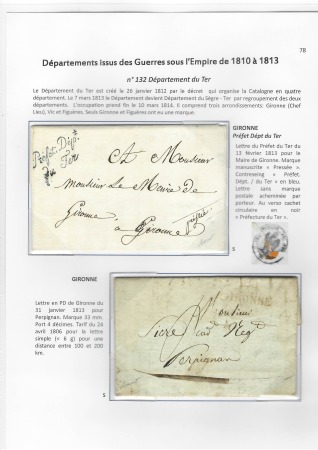 78
Départements issus des Guerres sous l'Empire de 1810 à 1813
n° 132 Département du Ter
Le Département du Ter est créé le 26 janvier 1812 par le décret qui organise la Catalogne en quatre
département. Le 7 mars 1813 le Département devient Département du Sègre - Ter par regroupement des deux
départements. L'occupation prend fin le 10 mars 1814. Il comprend trois arrondissements: Gironne (Chef
Lieu), Vic et Figuères. Seuls Gironne et Figuères ont eu une marque.
GIRONNE
Préfet Dépt du Ter
Lettre du Préfet du Ter du
13 février 1813 pour le
Maire de Gironne. Marque
manuscrite « Pressée ».
Contreseing « Préfet.
Dépt. / du Ter » en bleu.
Lettre sans marque
postale acheminée par
porteur. Au verso cachet
circulaire en noir
« Préfecture du Ter ».
Préfet. Dépt.
du Ter
A Monsieur
Monsieur Le Maire de
Gironne
à Gironne
S
GIRONNE
Lettre en PD de Gironne du
31 janvier 1813 pour
Perpignan. Marque 33 mm.
Port 4 décimes. Tarif du 24
avril 1806 pour la lettre
simple (< 6 g) pour une
distance entre 100 et 200
km.
Monsieur
Perpignan
S